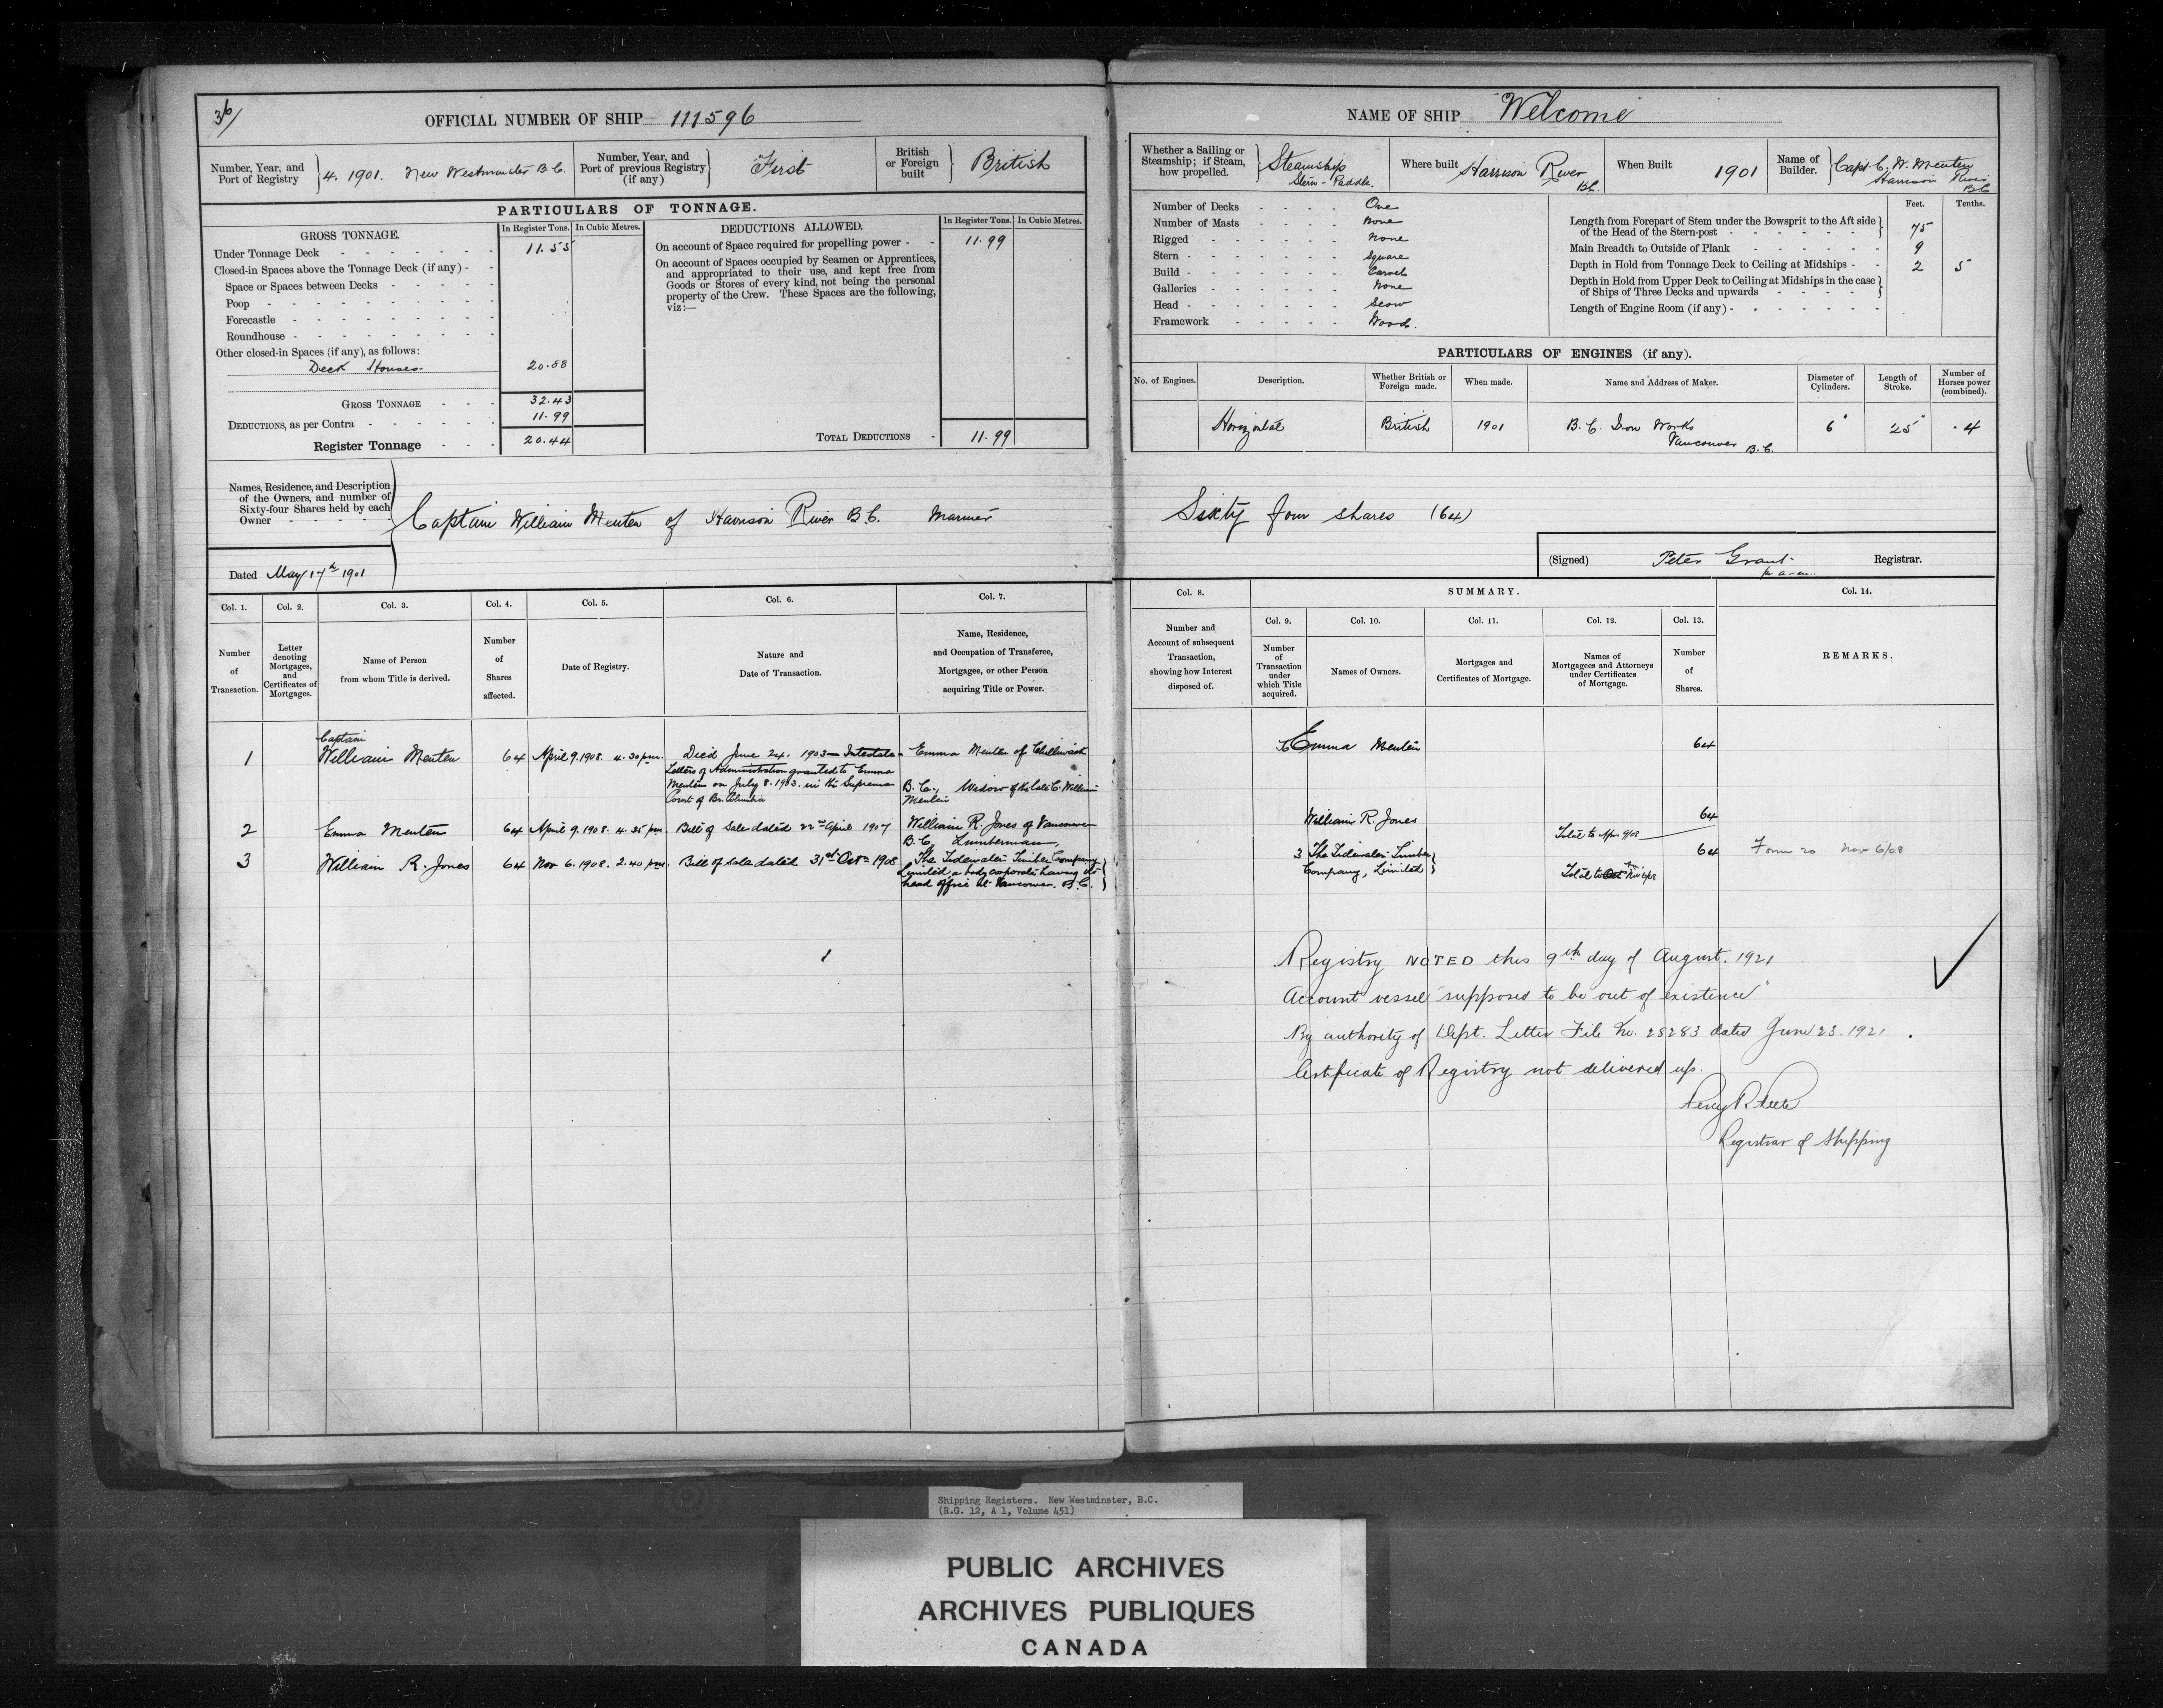 36/
OFFICIAL NUMBER OF SHIP 111596
Number, Year, and Port of Registry } 4. 1901. New Westminster B.C.
Number, Year, and Port of previous Registry (if any) } First
British or Foreign built } British
PARTICULARS OF TONNAGE.
GROSS TONNAGE. In Register Tons. In Cubic Metres.
Under Tonnage Deck 11.55
Closed-in Spaces above the Tonnage Deck (if any)
Space or Spaces between Decks
Poop
Forecastle
Roundhouse
Other closed-in Spaces (if any), as follows:
Deck Houses 20.88
GROSS TONNAGE 32.43
DEDUCTIONS, as per Contra 11.99
Register Tonnage 20.44
DEDUCTIONS ALLOWED. In Register Tons. In Cubic Metres.
On account of Space required for propelling power 11.99
On account of Spaces occupied by Seamen or Apprentices,
and appropriated to their use, and kept free from
Goods or Stores of every kind, not being the personal
property of the Crew. These Spaces are the following,
viz:—
TOTAL DEDUCTIONS 11.99
Names, Residence, and Description
of the Owners, and number of
Sixty-four Shares held by each
Owner
Captain William Menten of Harrison River B.C. Mariner
Dated May 17th 1901
Col. 1. Col. 2. Col. 3. Col. 4. Col. 5. Col. 6. Col. 7.
Number of Transaction.
Letter denoting Mortgages, and Certificates of Mortgages.
Name of Person from whom Title is derived.
Number of Shares affected.
Date of Registry.
Nature and Date of Transaction.
Name, Residence, and Occupation of Transferee, Mortgagee, or other Person acquiring Title or Power.
1 Captain William Menten 64 April 9. 1908. 4.30 pm. Died June 24. 1903 — Intestate
Letters of Administration granted to Emma
Menten on July 8. 1903. in the Supreme
Court of Br. Columbia
Emma Menten of Chilliwack
B.C., Widow of the late C. William
Menten
2 Emma Menten 64 April 9. 1908. 4.35 pm. Bill of Sale dated 22nd April 1907 William R. Jones of Vancouver
B.C. Lumberman,
3 William R. Jones 64 Nov 6. 1908. 2.40 pm. Bill of Sale dated 31st Oct 1908 The Tidewater Timber Company
Limited, a body corporate having its
head office at Vancouver. B.C.
NAME OF SHIP "Welcome"
Whether a Sailing or Steamship; if Steam, how propelled. } Steamship
Stern-Paddle.
Where built Harrison River
B.C.
When Built 1901
Name of Builder. } Capt C. W. Menten
Harrison River
B.C.
Number of Decks One
Number of Masts None
Rigged None
Stern Square
Build Carvel
Galleries None
Head Scow
Framework Wood.
Feet. Tenths.
Length from Forepart of Stem under the Bowsprit to the Aft side
of the Head of the Stern-post 75
Main Breadth to Outside of Plank 9
Depth in Hold from Tonnage Deck to Ceiling at Midships 2 5
Depth in Hold from Upper Deck to Ceiling at Midships in the case
of Ships of Three Decks and upwards
Length of Engine Room (if any)
PARTICULARS OF ENGINES (if any).
No. of Engines. Description. Whether British or Foreign made. When made. Name and Address of Maker. Diameter of Cylinders. Length of Stroke. Number of Horses power (combined).
Horizontal British 1901 B.C. Iron Works 6" 25" .4
Vancouver B.C.
Sixty four shares (64)
(Signed) Peter Grant Registrar.
Col. 8. SUMMARY. Col. 14.
Col. 9. Col. 10. Col. 11. Col. 12. Col. 13.
Number and Account of subsequent Transaction, showing how Interest disposed of.
Number of Transaction under which Title acquired.
Names of Owners.
Mortgages and Certificates of Mortgage.
Names of Mortgagees and Attorneys under Certificates of Mortgage.
Number of Shares.
REMARKS.
Emma Menten 64
William R. Jones 64
Total to Apr. 9/08
3 The Tidewater Timber 64 Form 20 Nov 6/08
Company, Limited
Total to Nov 6/08
Registry NOTED this 9th day of August. 1921
Account vessel "supposed to be out of existence"
By authority of Dept. Letter File No. 28283 dated June 23. 1921.
Certificate of Registry not delivered up.
Registrar of Shipping
Shipping Registers. New Westminster, B.C.
(R.G. 12, A 1, Volume 451)
PUBLIC ARCHIVES
ARCHIVES PUBLIQUES
CANADA